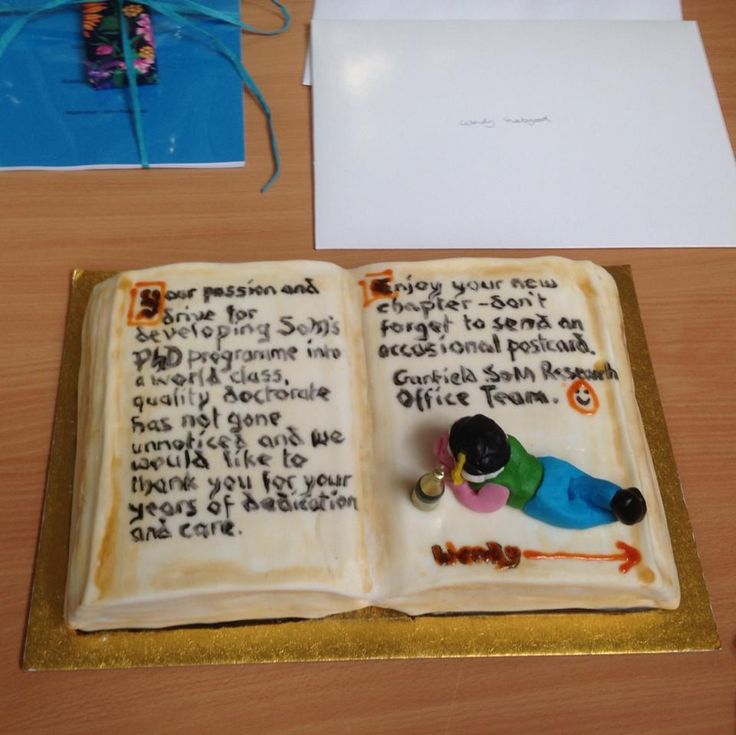 Your passion and
drive for
developing SoM's
PhD programme into
a world class,
quality doctorate
has not gone
unnoticed and we
would like to
thank you for your
years of dedication
and care.
Enjoy your new
chapter - don't
forget to send an
occasional postcard.
Cranfield SoM Research
Office Team.
Wendy
Wendy